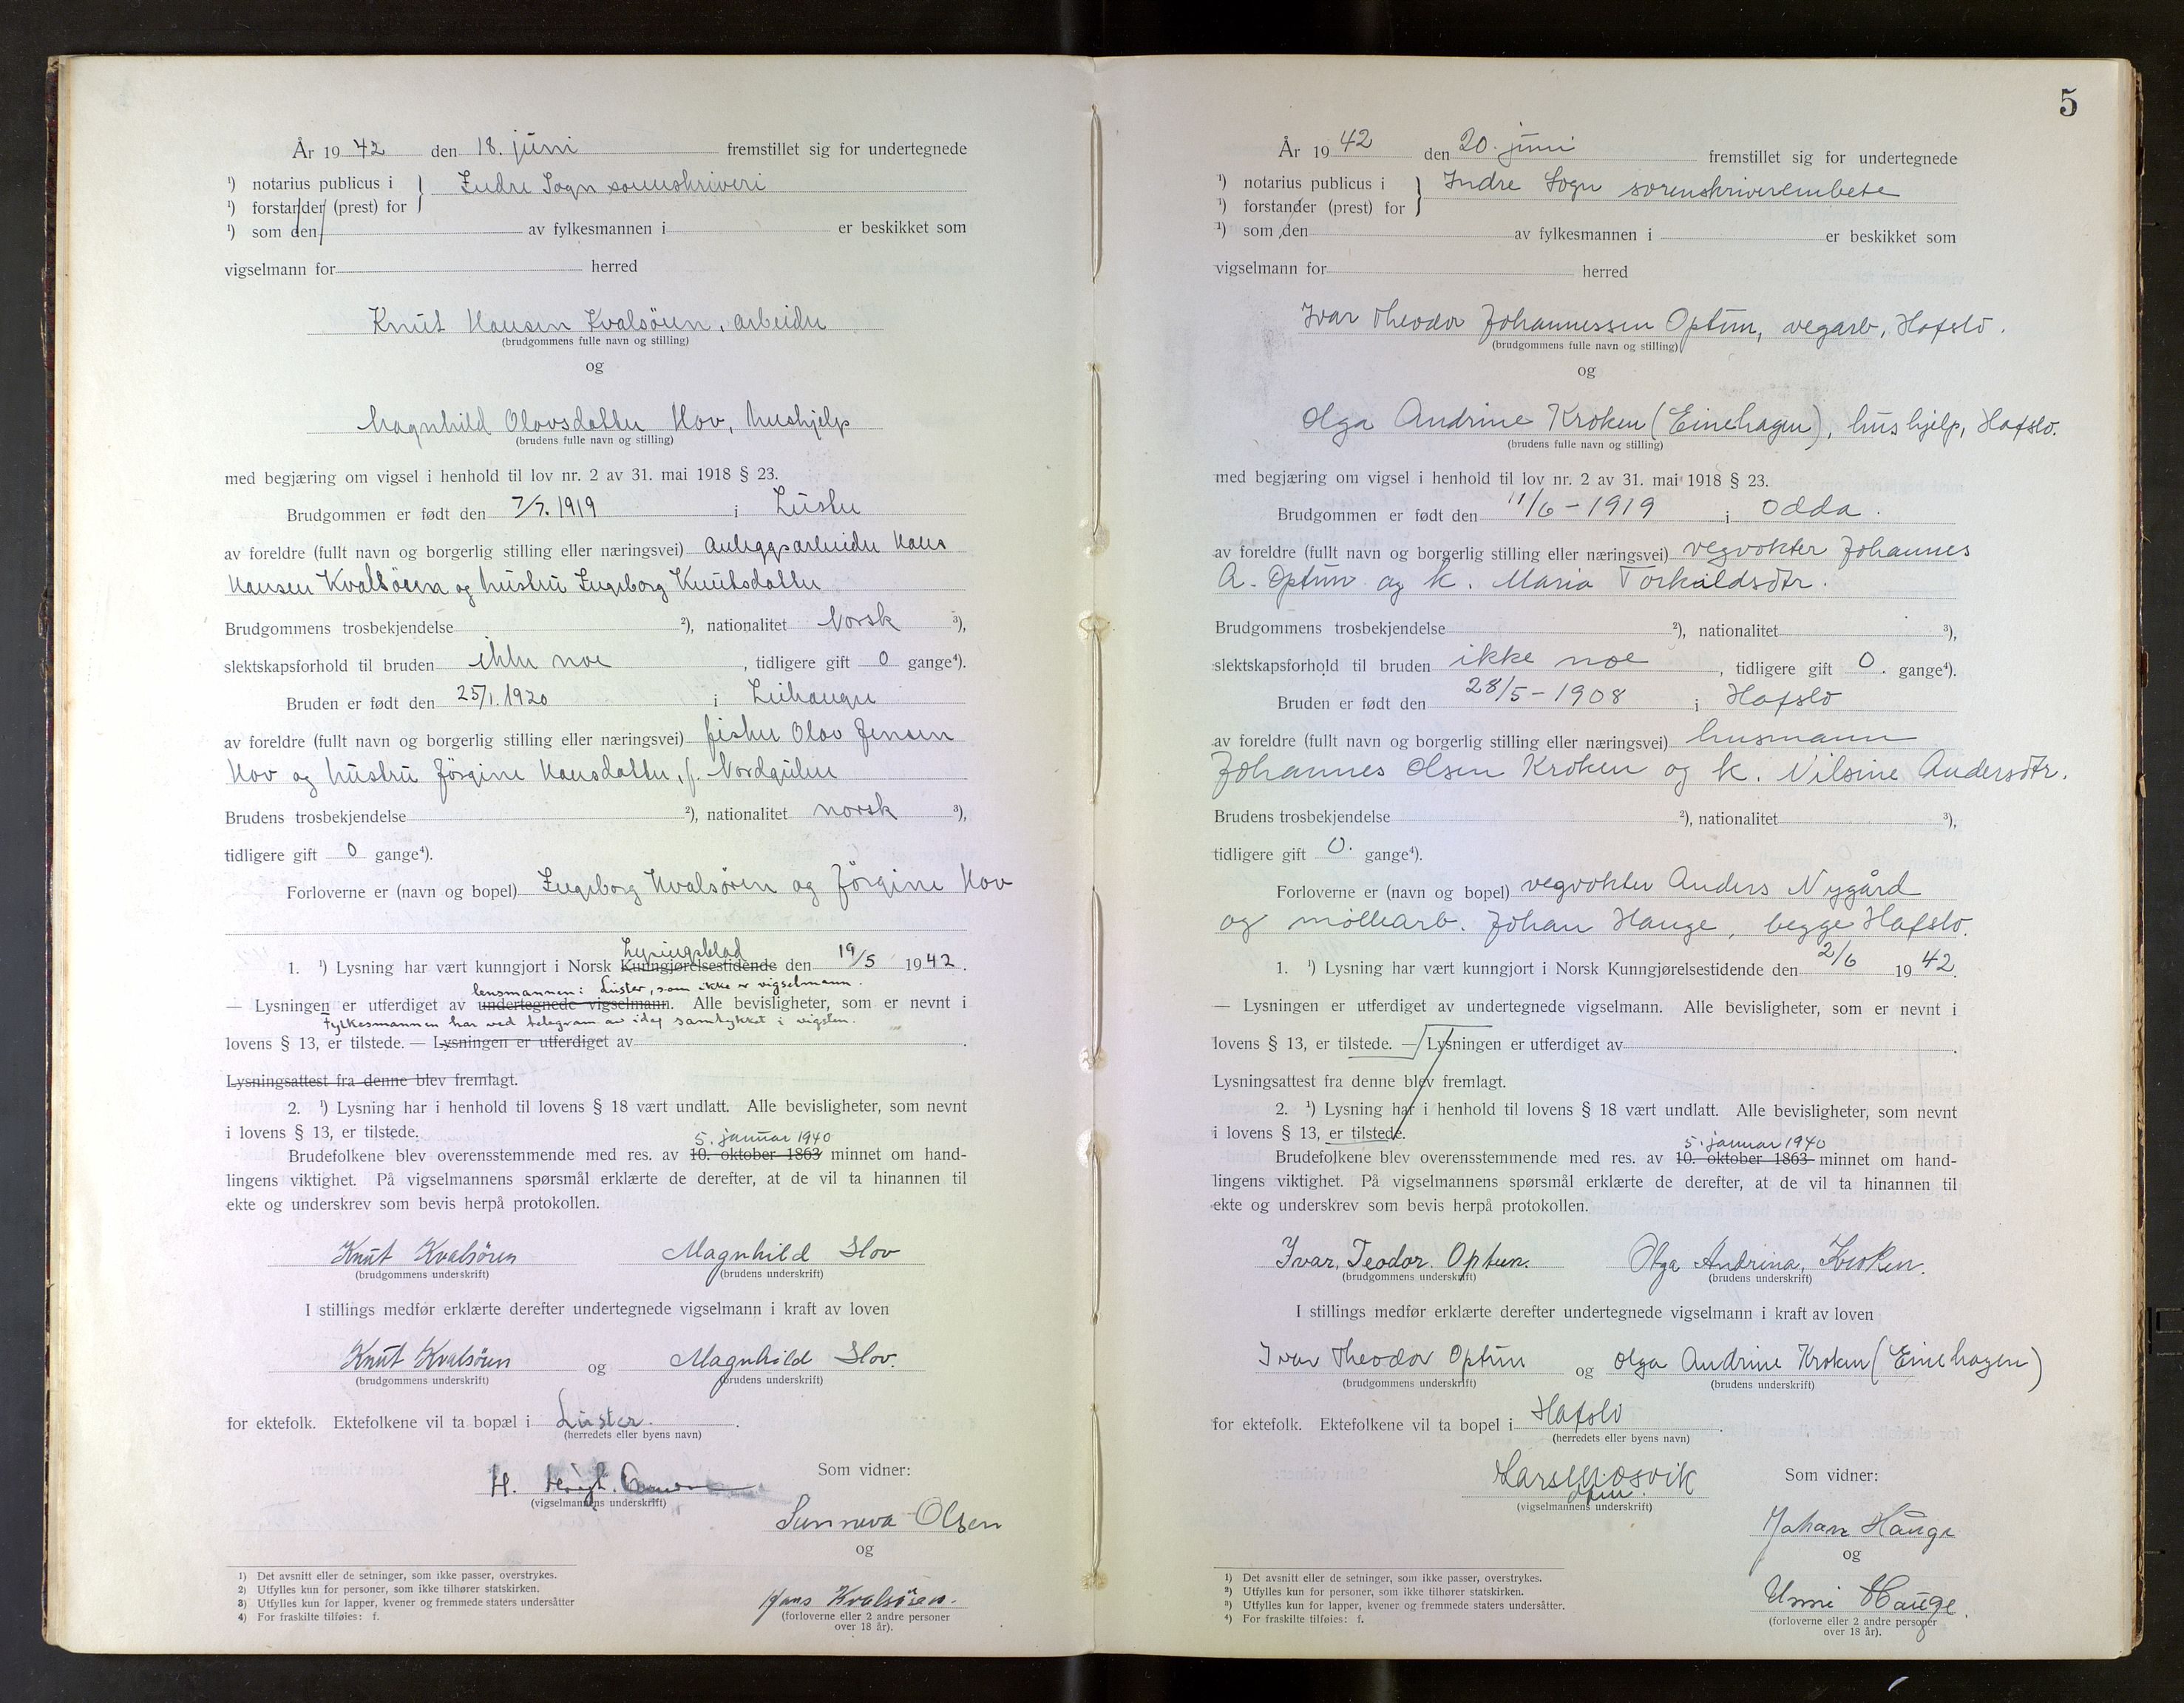 År 1942 den 18. juni fremstillet sig for undertegnede
¹) notarius publicus i
Indre Sogn sorenskriveri
¹) forstander (prest) for
¹) som den av fylkesmannen i er beskikket som
vigselmann for herred
Knut Hansen Kvalsøren, arbeider
(brudgommens fulle navn og stilling)
og
Magnhild Olavsdatter Hov, hushjelp
(brudens fulle navn og stilling)
med begjæring om vigsel i henhold til lov nr. 2 av 31. mai 1918 § 23.
Brudgommen er født den 7/7. 1919 i Luster
av foreldre (fullt navn og borgerlig stilling eller næringsvei) anleggsarbeider Hans
Hansen Kvalsøren og hustru Ingeborg Knutsdatter
Brudgommens trosbekjendelse ²), nationalitet Norsk ³),
slektskapsforhold til bruden ikke noe, tidligere gift 0 gange⁴).
Bruden er født den 25/1. 1920 i
av foreldre (fullt navn og borgerlig stilling eller næringsvei) fisker Olav Jensen
Hov og hustru Jörgine Hansdatter, f. Nordgulen
Brudens trosbekjendelse ²), nationalitet norsk ³),
tidligere gift 0 gange⁴).
Forloverne er (navn og bopel) Ingeborg Kvalsøren og Jörgine Hov
Lysingsblad
1. ¹) Lysning har vært kunngjort i Norsk Kunngjørelsestidende den 19/5 1942.
lensmannen i Luster, som ikke er vigselmann.
— Lysningen er utferdiget av undertegnede vigselmann. Alle bevisligheter, som er nevnt i
Fylkesmannen har ved telegram av idag samtykket i vigslen.
lovens § 13, er tilstede. — Lysningen er utferdiget av .
Lysningsattest fra denne blev fremlagt.
2. ¹) Lysning har i henhold til lovens § 18 vært undlatt. Alle bevisligheter, som nevnt
i lovens § 13, er tilstede.
5. januar 1940
Brudefolkene blev overensstemmende med res. av 10. oktober 1863 minnet om hand-
lingens viktighet. På vigselmannens spørsmål erklærte de derefter, at de vil ta hinannen til
ekte og underskrev som bevis herpå protokollen.
Knut Kvalsören Magnhild Hov
(brudgommens underskrift) (brudens underskrift)
I stillings medfør erklærte derefter undertegnede vigselmann i kraft av loven
Knut Kvalsören og Magnhild Hov.
(brudgommens underskrift) (brudens underskrift)
for ektefolk. Ektefolkene vil ta bopæl i Luster.
(herredets eller byens navn)
H.
Som vidner:
(vigselmannens underskrift)
Sunneva Olsen
og
Hans Kvalsören.
(forloverne eller 2 andre personer
over 18 år).
1) Det avsnitt eller de setninger, som ikke passer, overstrykes.
2) Utfylles kun for personer, som ikke tilhører statskirken.
3) Utfylles kun for lapper, kvener og fremmede staters undersåtter
4) For fraskilte tilføies: f.
5
År 1942 den 20. juni fremstillet sig for undertegnede
¹) notarius publicus i
Indre Sogn sorenskriverembete
¹) forstander (prest) for
¹) som den av fylkesmannen i er beskikket som
vigselmann for herred
Ivar Theodor Johannessen Optun, vegarb, Hafslo.
(brudgommens fulle navn og stilling)
og
Olga Andrine Kroken (Einehagen), hushjelp, Hafslo.
(brudens fulle navn og stilling)
med begjæring om vigsel i henhold til lov nr. 2 av 31. mai 1918 § 23.
Brudgommen er født den 11/6 - 1919 i Odda.
av foreldre (fullt navn og borgerlig stilling eller næringsvei) vegvokter Johannes
A. Optun og k. Maria Torkildsdtr.
Brudgommens trosbekjendelse ²), nationalitet ³),
slektskapsforhold til bruden ikke noe, tidligere gift 0. gange⁴).
Bruden er født den 28/5 - 1908 i Hafslo
av foreldre (fullt navn og borgerlig stilling eller næringsvei) husmann
Johannes Olsen Kroken og k. Nilsine Andersdtr.
Brudens trosbekjendelse ²), nationalitet ³),
tidligere gift 0. gange⁴).
Forloverne er (navn og bopel) vegvokter Anders Nygård
og møllearb. Johan Hauge, begge Hafslo.
1. ¹) Lysning har vært kunngjort i Norsk Kunngjørelsestidende den 2/6 1942.
— Lysningen er utferdiget av undertegnede vigselmann. Alle bevisligheter, som er nevnt i
lovens § 13, er tilstede. — Lysningen er utferdiget av .
Lysningsattest fra denne blev fremlagt.
2. ¹) Lysning har i henhold til lovens § 18 vært undlatt. Alle bevisligheter, som nevnt
i lovens § 13, er tilstede.
5. januar 1940
Brudefolkene blev overensstemmende med res. av 10. oktober 1863 minnet om hand-
lingens viktighet. På vigselmannens spørsmål erklærte de derefter, at de vil ta hinannen til
ekte og underskrev som bevis herpå protokollen.
Ivar. Teodor. Optun. Olga Andrina, Kroken.
(brudgommens underskrift) (brudens underskrift)
I stillings medfør erklærte derefter undertegnede vigselmann i kraft av loven
Ivar Theodor Optun og Olga Andrine Kroken (Einehagen)
(brudgommens underskrift) (brudens underskrift)
for ektefolk. Ektefolkene vil ta bopel i Hafslo.
(herredets eller byens navn)
Som vidner:
(vigselmannens underskrift)
Johan Hauge
og
Unni Hauge.
(forloverne eller 2 andre personer
over 18 år).
1) Det avsnitt eller de setninger, som ikke passer, overstrykes.
2) Utfylles kun for personer, som ikke tilhører statskirken.
3) Utfylles kun for lapper, kvener og fremmede staters undersåtter.
4) For fraskilte tilføies: f.